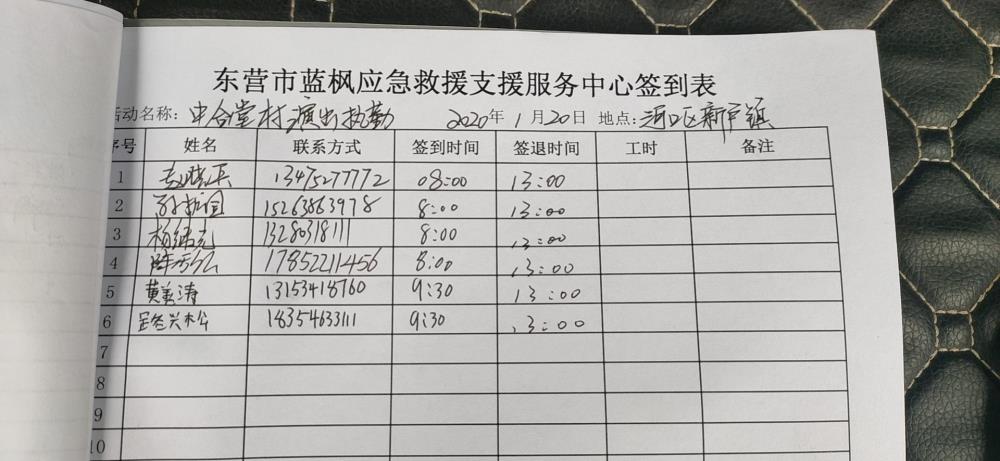 东营市蓝枫应急救援支援服务中心签到表
活动名称: 中合堂村演出执勤 2020年 1月20日 地点: 河口区新户镇
序号 姓名 联系方式 签到时间 签退时间 工时 备注
1 13475277772 08:00 13:00
2 15263863978 8:00 13:00
3 13280318111 8:00 13:00
4 17852211456 8:00 13:00
5 黄美涛 13153418760 9:30 13:00
6 18354633111 9:30 13:00
7
8
9
10